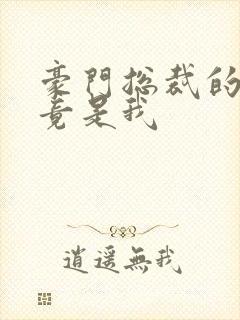 豪門總裁的
竟是我
逍遥無我